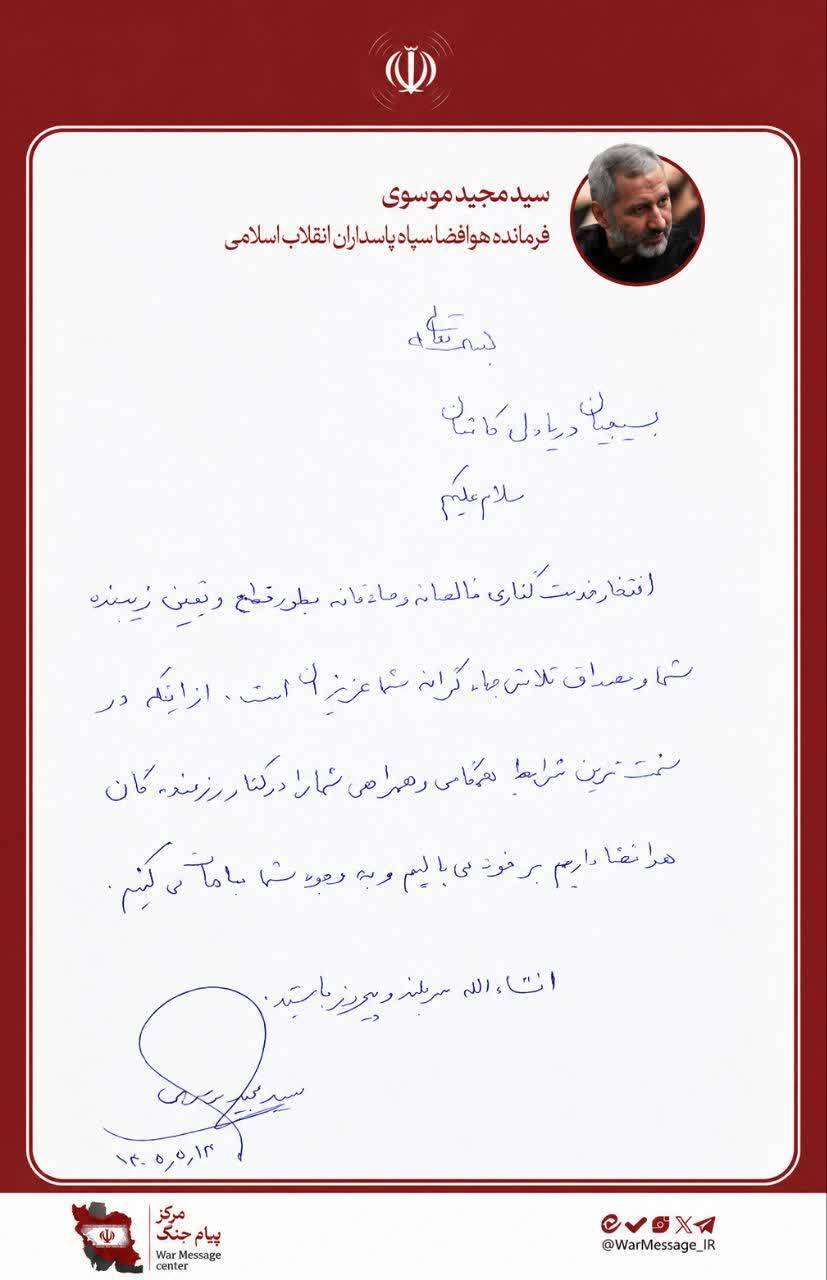 سید مجید موسوی
فرمانده هوافضا سپاه پاسداران انقلاب اسلامی
بسمه تعالی
بسیجیان دریادل کاشان
سلام علیکم
افتخار خدمت گذاری خالصانه و صادقانه بطور قطع و یقین زیبنده
شما و مصداق تلاش جهادگرانه شما عزیزان است. از اینکه در
سخت ترین شرایط همگامی و همراهی شما را در کنار رزمنده گان
هوافضا داریم بر خود می بالیم و به وجود شما مباهات می کنیم.
انشاء الله سربلند و پیروز باشید.
سید مجید موسوی
۱۴۰۵٫۵٫۱۳
مرکز
پیام جنگ
War Message
center
@WarMessage_IR